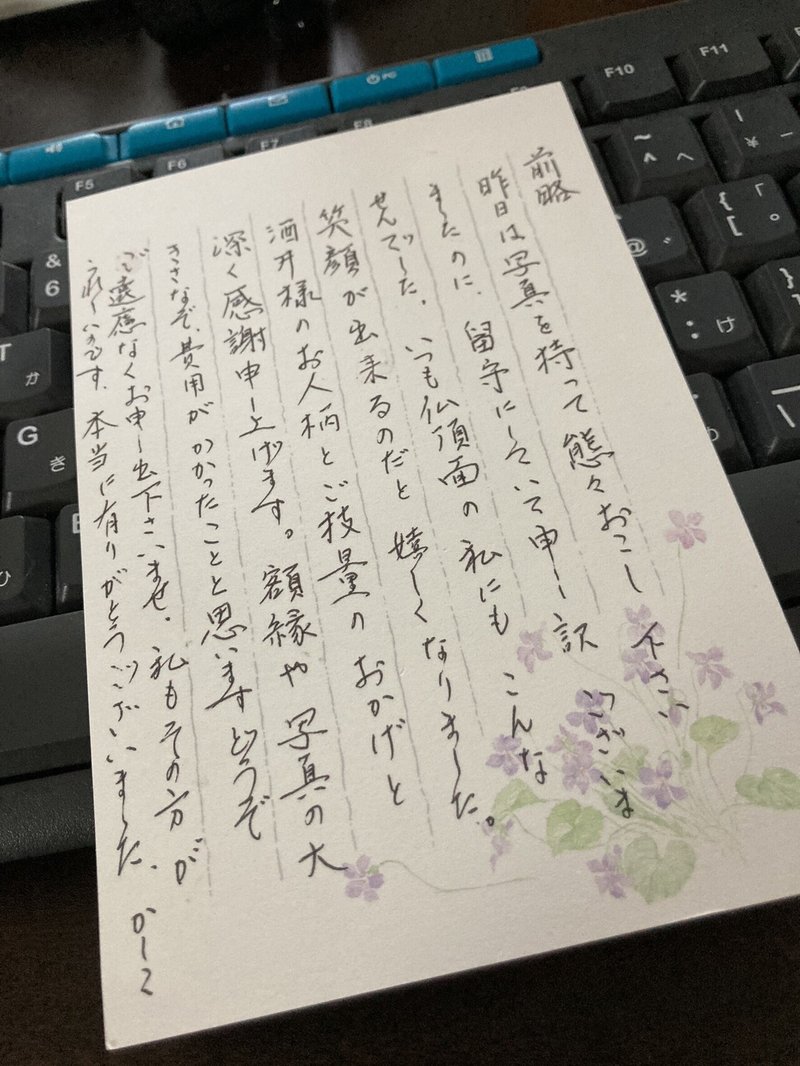 前略
昨日は写真を持って態々おこし下さい
ましたのに、留守にしていて申し訳ございま
せんでした。いつも仏頂面の私にもこんな
笑顔が出来るのだと嬉しくなりました。
酒井様のお人柄とご技量のおかげと
深く感謝申し上げます。額縁や写真の大
きさなぞ、費用がかかったことと思いますどうぞ
ご遠慮なくお申し出下さいませ。私もその方が
うれしいのです。本当に有りがとうございました、かしこ
F5
F6
F7
F8
F10
F11
&
6
T
か
G
き
ひ
~
^
へ
|
¥
ー
{
[
「
。
@
*
:
け
}